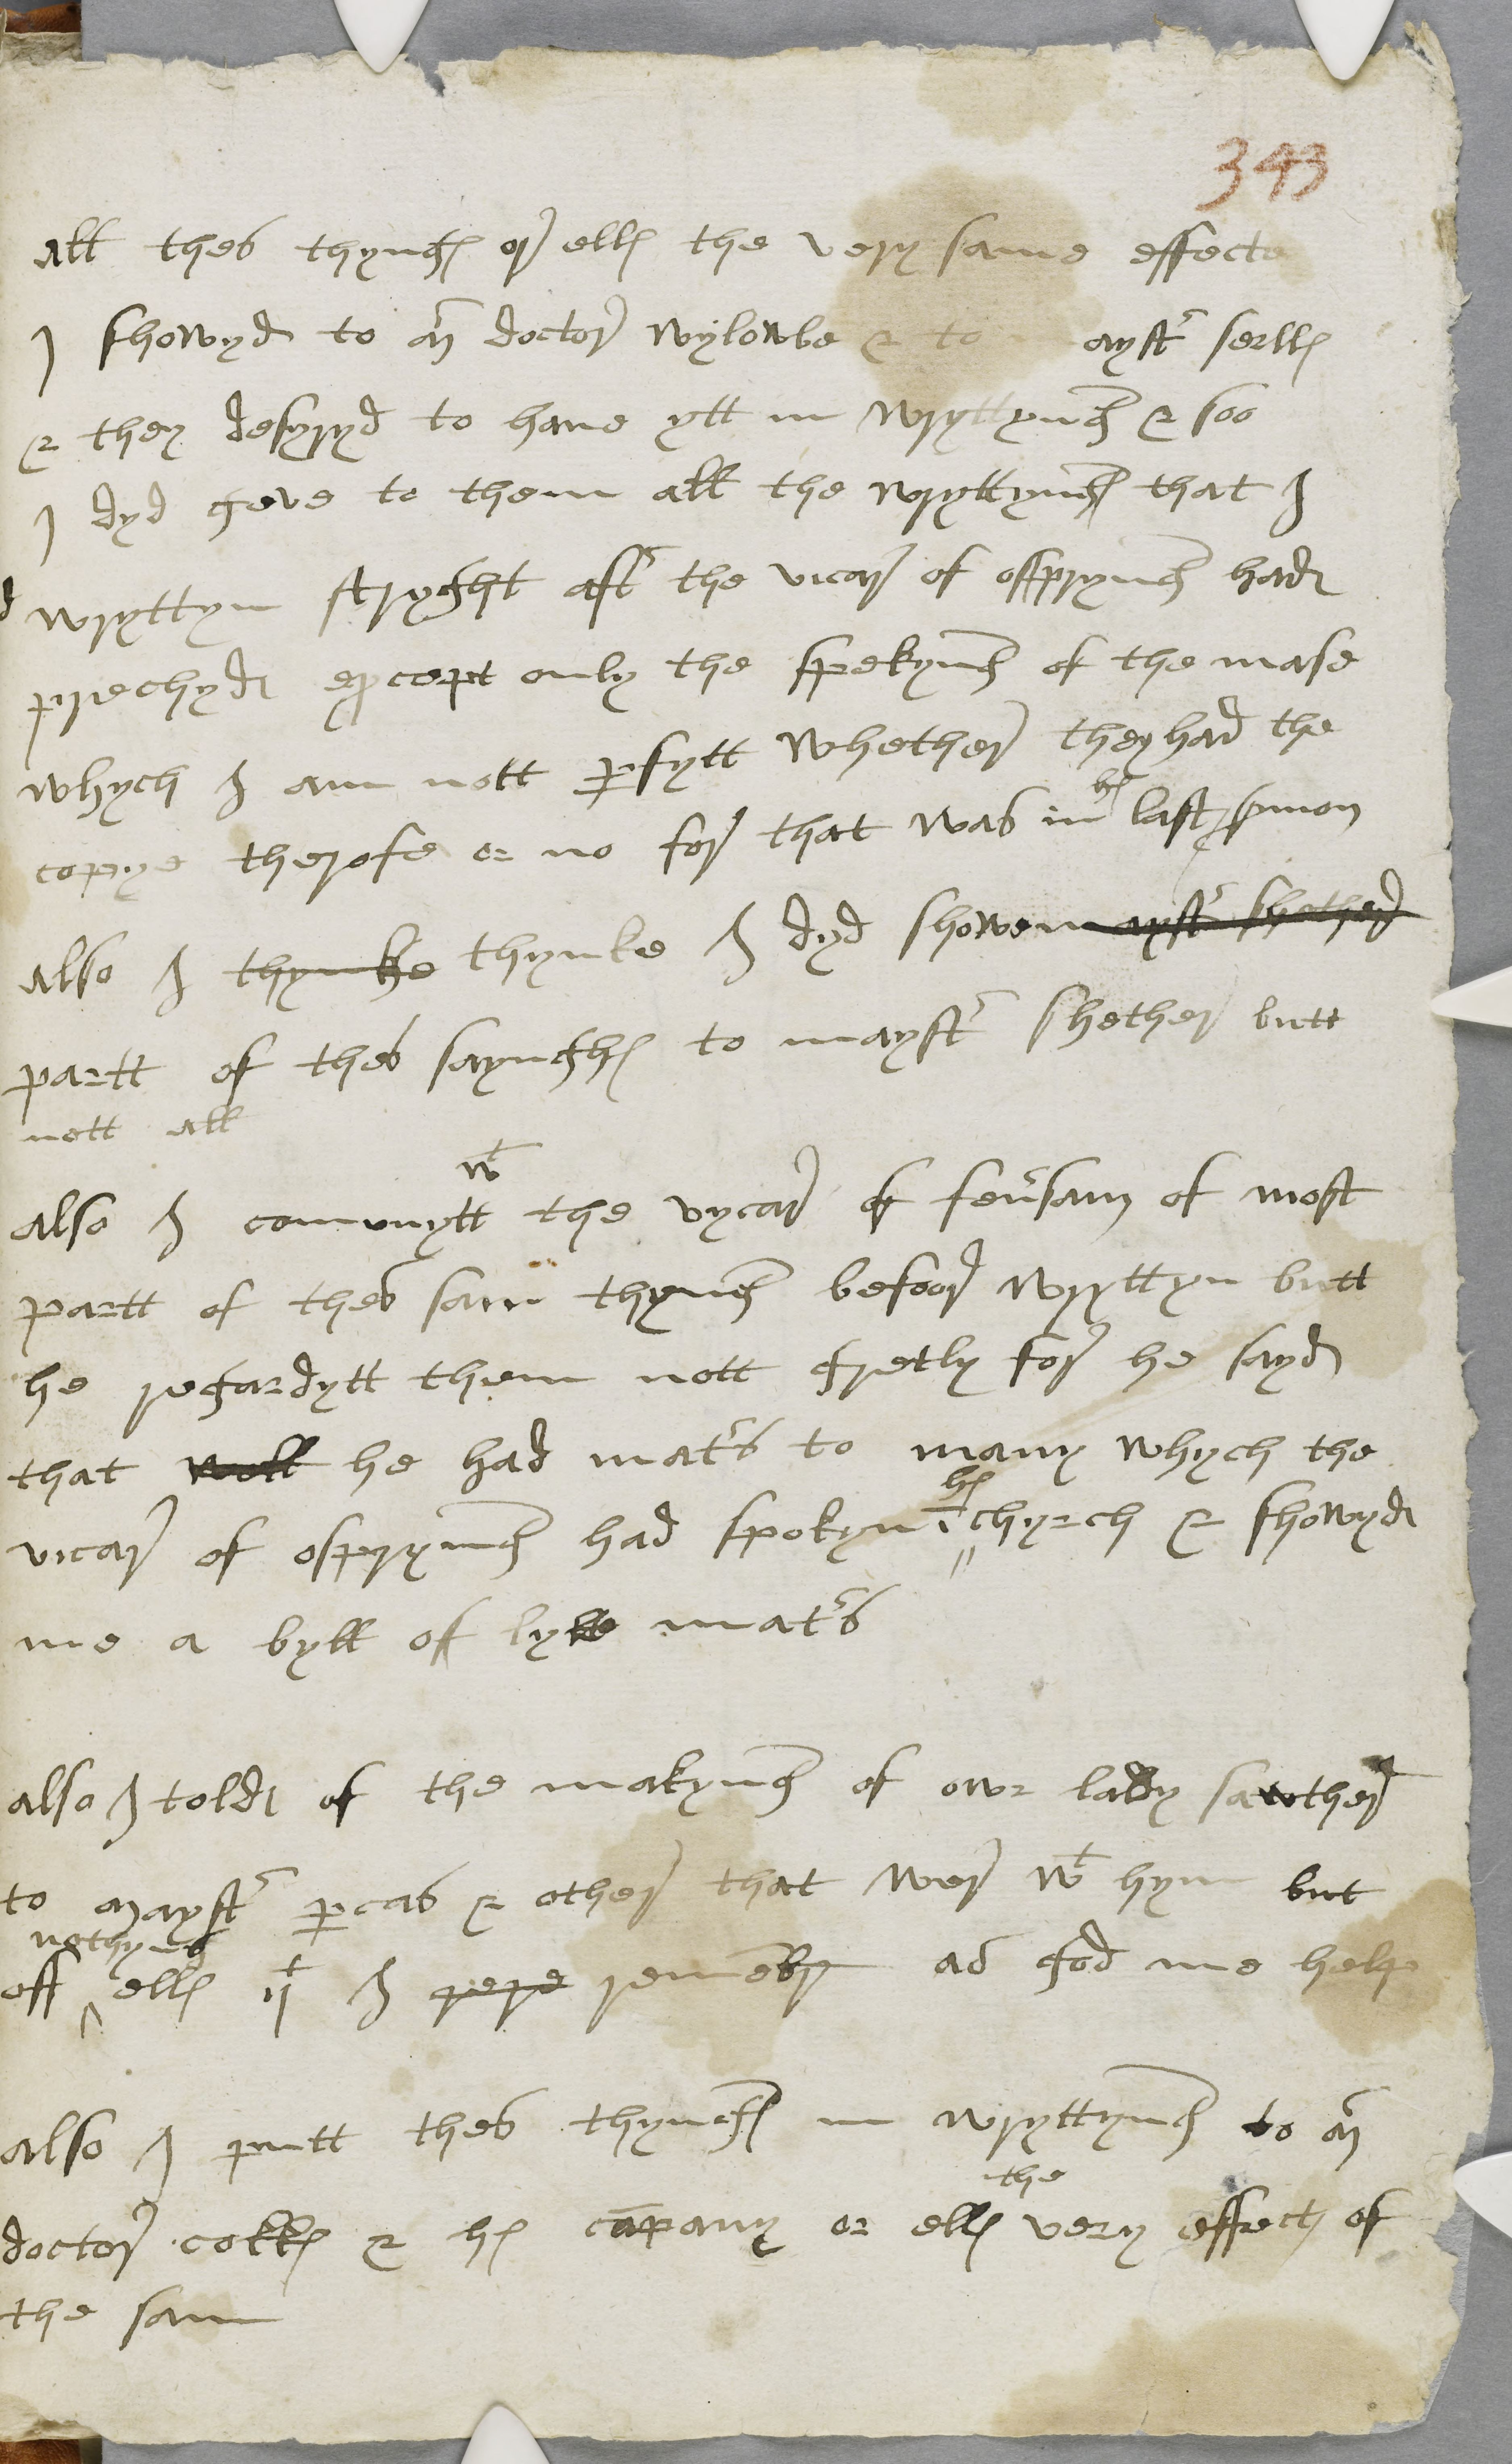 343
all thes thyngs or ells the very same effecte
I showyd to M doctor wylowbe & to mayst serlls
& they desyryd to have ytt in wryttyng & soo
I dyd geve to them all the wryttyng that I
wryttyn stryght aft the vicar of osspryng had
prechyd except only the spekyng of the mase
whych I am nott pfytt whether they had the
copye therofe or no for that was in hys last smon
also I thynke thynke I dyd showe mayst shether
partt of thes sayngs to mayst shether butt
nott all
also I comunytt wt the vycar of fevsam of most
partt of thes sam thyng befoor wryttyn butt
he regardytt them nott gretly for he sayd
that well he had mats to many whych the
vicar of ospryng had spokyn i hys chyrch & showyd
me a byll of lyke mats
also I told of the makyng of owr lady sawther
to mayst pcas & other that wer wt hym but
off nothyng ells yt I repe remebr as god me help
also I putt thes thyngs in wryttyng to M
doctor cokks & hys capany or ells the very effect of
the sam